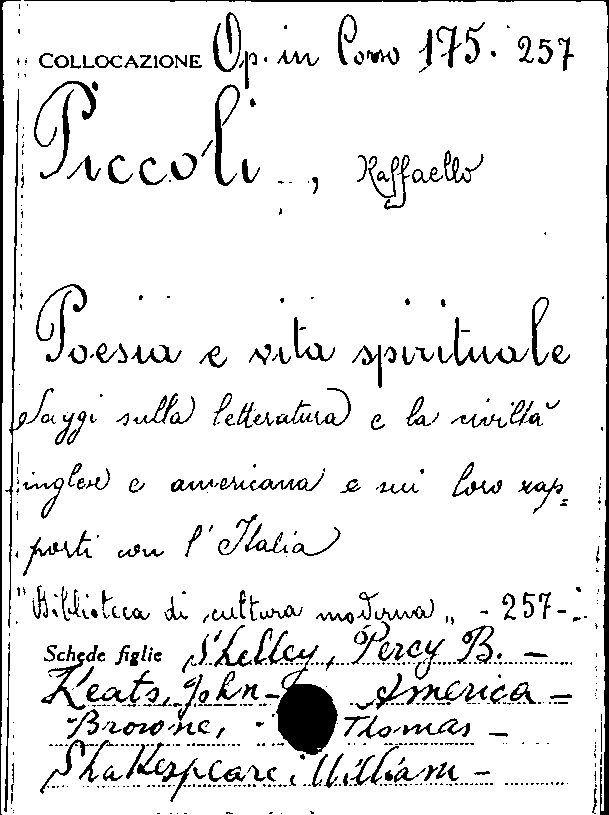 COLLOCAZIONE Op. in Corso 175. 257
Piccoli, Raffaello
Poesia e vita spirituale
Saggi sulla letteratura e la civiltà
inglese e americana e sui loro rap=
porti con l'Italia
"Biblioteca di cultura moderna„ - 257 -
Schede figlie Shelley, Percy B. -
Keats, John - America -
Browne, Thomas -
Shakespeare, William -